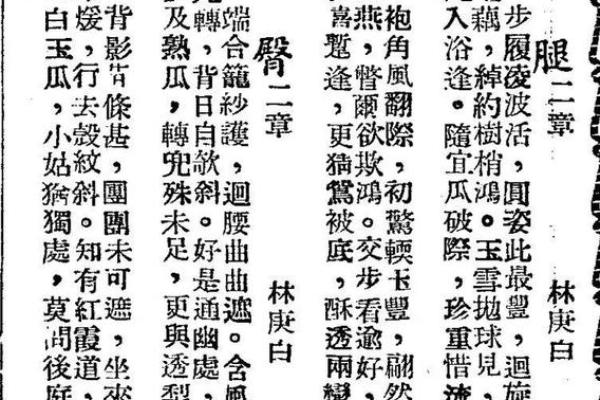 腿二章
林庚白
步履凌波活，圓姿此最豐，迴旋
藕，綽約樹梢鴻。玉雪拋球見，
入浴逢。隨宜瓜破際，珍重惜流
袍角風翻際，初驚輭玉豐，翩然
燕，瞥爾欲欺鴻。交步看逾好，
喜蹔逢，更猶鴛被底，酥透兩彎
臀二章
林庚白
端合籠紗護，迴腰曲曲遮。含風
轉，背日自欹斜。好是通幽處，
及熟瓜，轉兜殊未足，更與透梨
背影苗條甚，團團未可遮，坐來
煖，行去縠紋斜。知有紅霞道，
白玉瓜，小姑猶獨處，莫問後庭